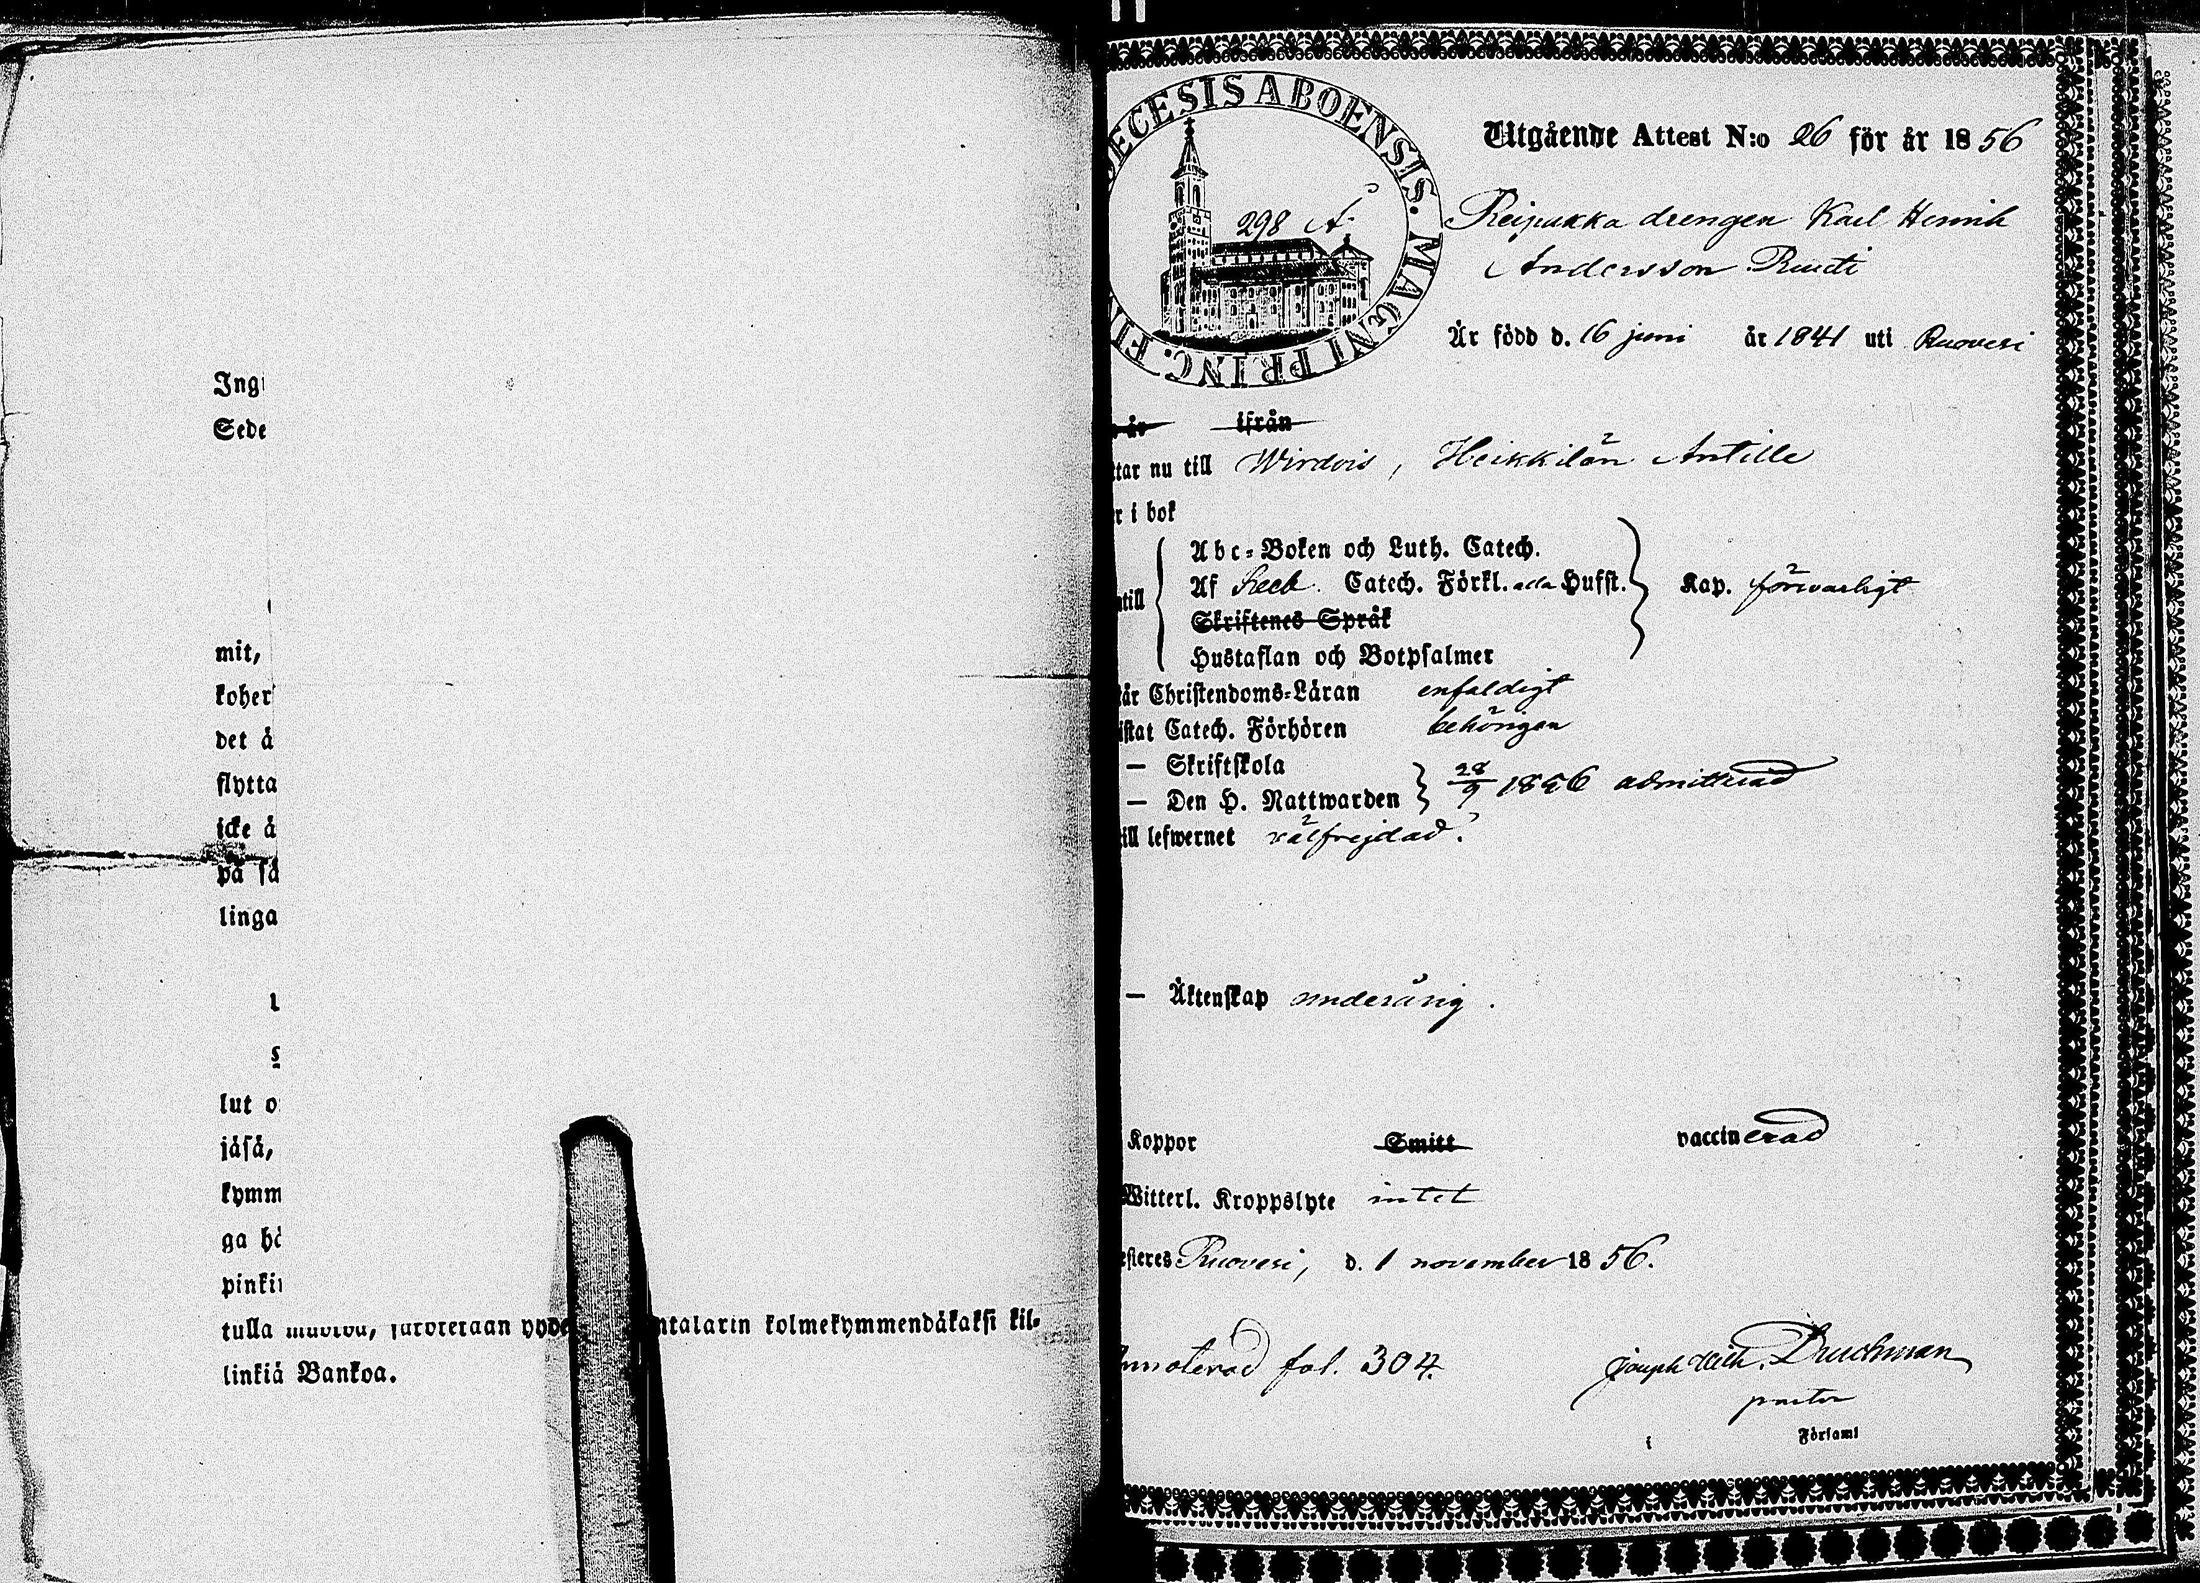 Ing
Sede
mit,
koher
det å
flytta
icke ä
på så
linga
lut o
jäsä,
kymm
ga hö
pinki
tulla
ntalarin kolmekymmendäkaksi kil-
linkiä Bankoa.
ECESIS ABOENSIS. MAGNI PRINC. FIN
298 A.
Utgående Attest N:o 26 för år 1856
Reipakka drengen Karl Henrik
Andersson Ruuti
Är född d. 16 juni år 1841 uti Ruovesi
år ifrån
ttar nu till Wirdois, Heikkilän Antille
r i bok
Abc-Boken och Luth. Catech.
Af Catech. Förkl. alla Hufst.
ntill
Kap. försvarligt
Skriftenes Språk
Hustaflan och Botpsalmer
tår Christendoms-Läran enfaldigt
istat Catech. Förhören behörigen
— Skriftskola
— Den H. Nattwarden 28/9 1856 admitterad
till lefwernet välfrejdad.
— Äktenskap underårig.
Koppor Smitt vaccinerad
Witterl. Kroppslyte intet
esteres Ruovesi, d. 1 november 1856.
Annoterad fol. 304.
Joseph Wilh. Druchman
pastor
i Församl